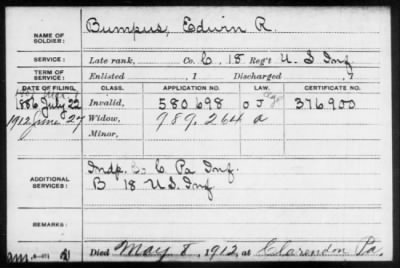 NAME OF SOLDIER: Bumpus, Edwin R.
SERVICE: Late rank, Co. C, 18 Reg't U. S Inf
TERM OF SERVICE: Enlisted , 1 Discharged , 1
DATE OF FILING. CLASS. APPLICATION NO. LAW. CERTIFICATE NO.
1886 July 22 Invalid, 580698 O J 376900
1912 June 27 Widow, 989.264 a
Minor,
ADDITIONAL SERVICES: Indp. Co C Pa Inf.
B 18 U.S. Inf
REMARKS:
Died May 8, 1912, at Clarendon, Pa.